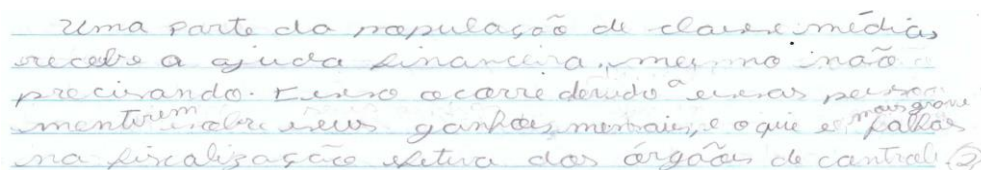 Uma parte da população de classe média,
recebe a ajuda financeira, mesmo não
precisando. Isso ocorre devido a essas pessoas
mentirem sobre seus ganhos mensais, e o que é mais grave falhas
na fiscalização efetiva dos órgãos de control (2)